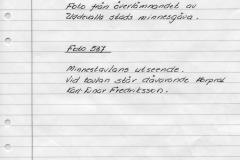 Foto från överlämnandet av
Uddevalla stads minnesgåva.
Foto 587
Minnestavlans utseende.
Vid tavlan står dåvarande Korpral
Karl Einar Fredriksson.